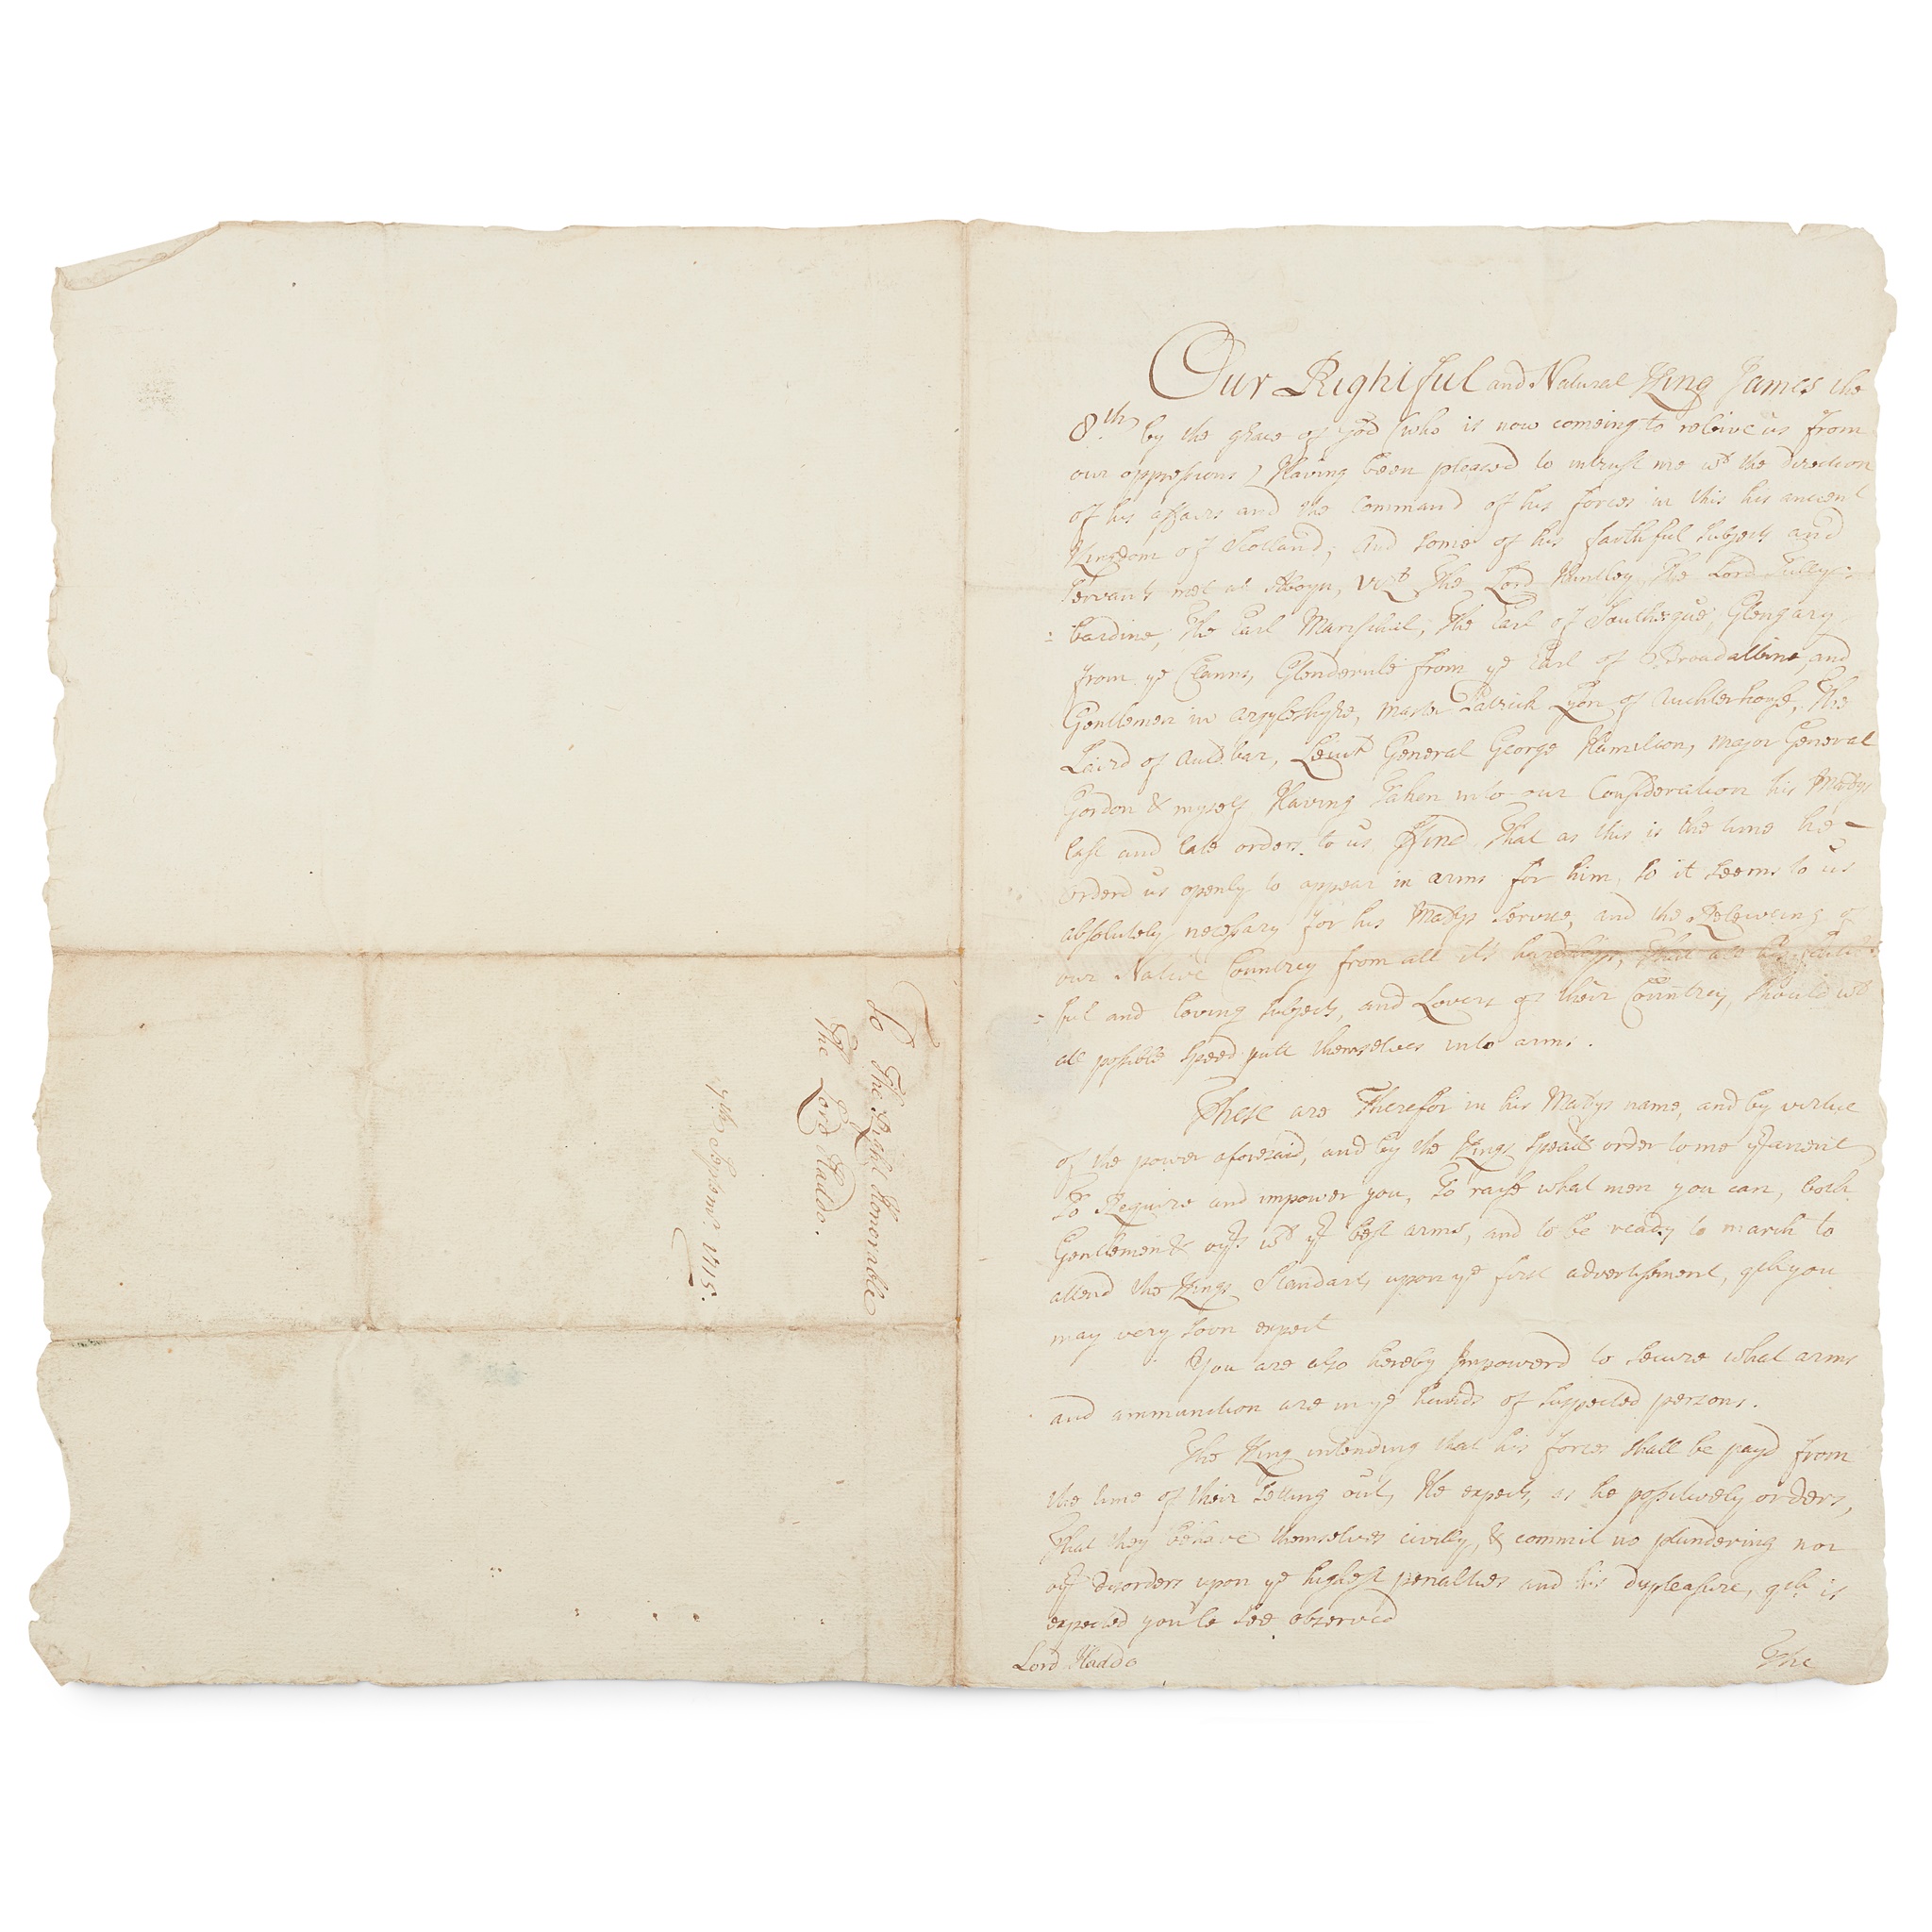 Our Rightful and Natural King James the
8th by the grace of God (who is now comeing to releive us from
our oppressions) Having been pleased to intrust me wt the direction
of his affairs and the Command of his forces in this his ancient
Kingdom of Scotland; And some of his faithful subjects and
servants met at Aboyn, vizt The Lord Huntley, The Lord Tully-
-bardine, The Earl Marischal, The Earl of Southesque, Glengary
from ye Clanns, Glenderule from ye Earl of Broadalbine and
Gentlemen in Argyleshyre, master Patrick Lyon of Auchterhouse, The
Laird of Auldbar, Lieut General George Hamilton, Major General
Gordon & myself Having Taken into our Consideration his Matys
last and late orders to us Ffind That as this is the time he-
orderd us openly to appear in arms for him, so it seems to us
absolutely necessary for his Matys service, and the Releiveing of
our Native Countrey from all its hardships, That all his faith-
-ful and loving subjects, and Lovers of their Countrey, should wt
all possible speed putt themselves into arms.
These are Therefor in his Matys name, and by virtue
of the power aforesaid, and by the Kings speciall order to me yranent
To Require and impower you, To raise what men you can, both
Gentlemen & oyrs wt yr best arms, and to be ready to march to
attend the Kings Standart, upon ye first advertisement, qch you
may very soon expect
You are also hereby Impowerd to secure what arms
and ammunition are in ye hands of suspected persons.
The King intending that his forces shall be payd from
the time of their setting out, He expects, as he possitively orders,
That they behave themselves civilly, & commit no plundering nor
oyr disorders upon ye highest penalties and his displeasure, qch is
expected you'le see observed
Lord Haddo
The
To The Right Honorable
The Lord Haddo.
7th Septemr. 1715.